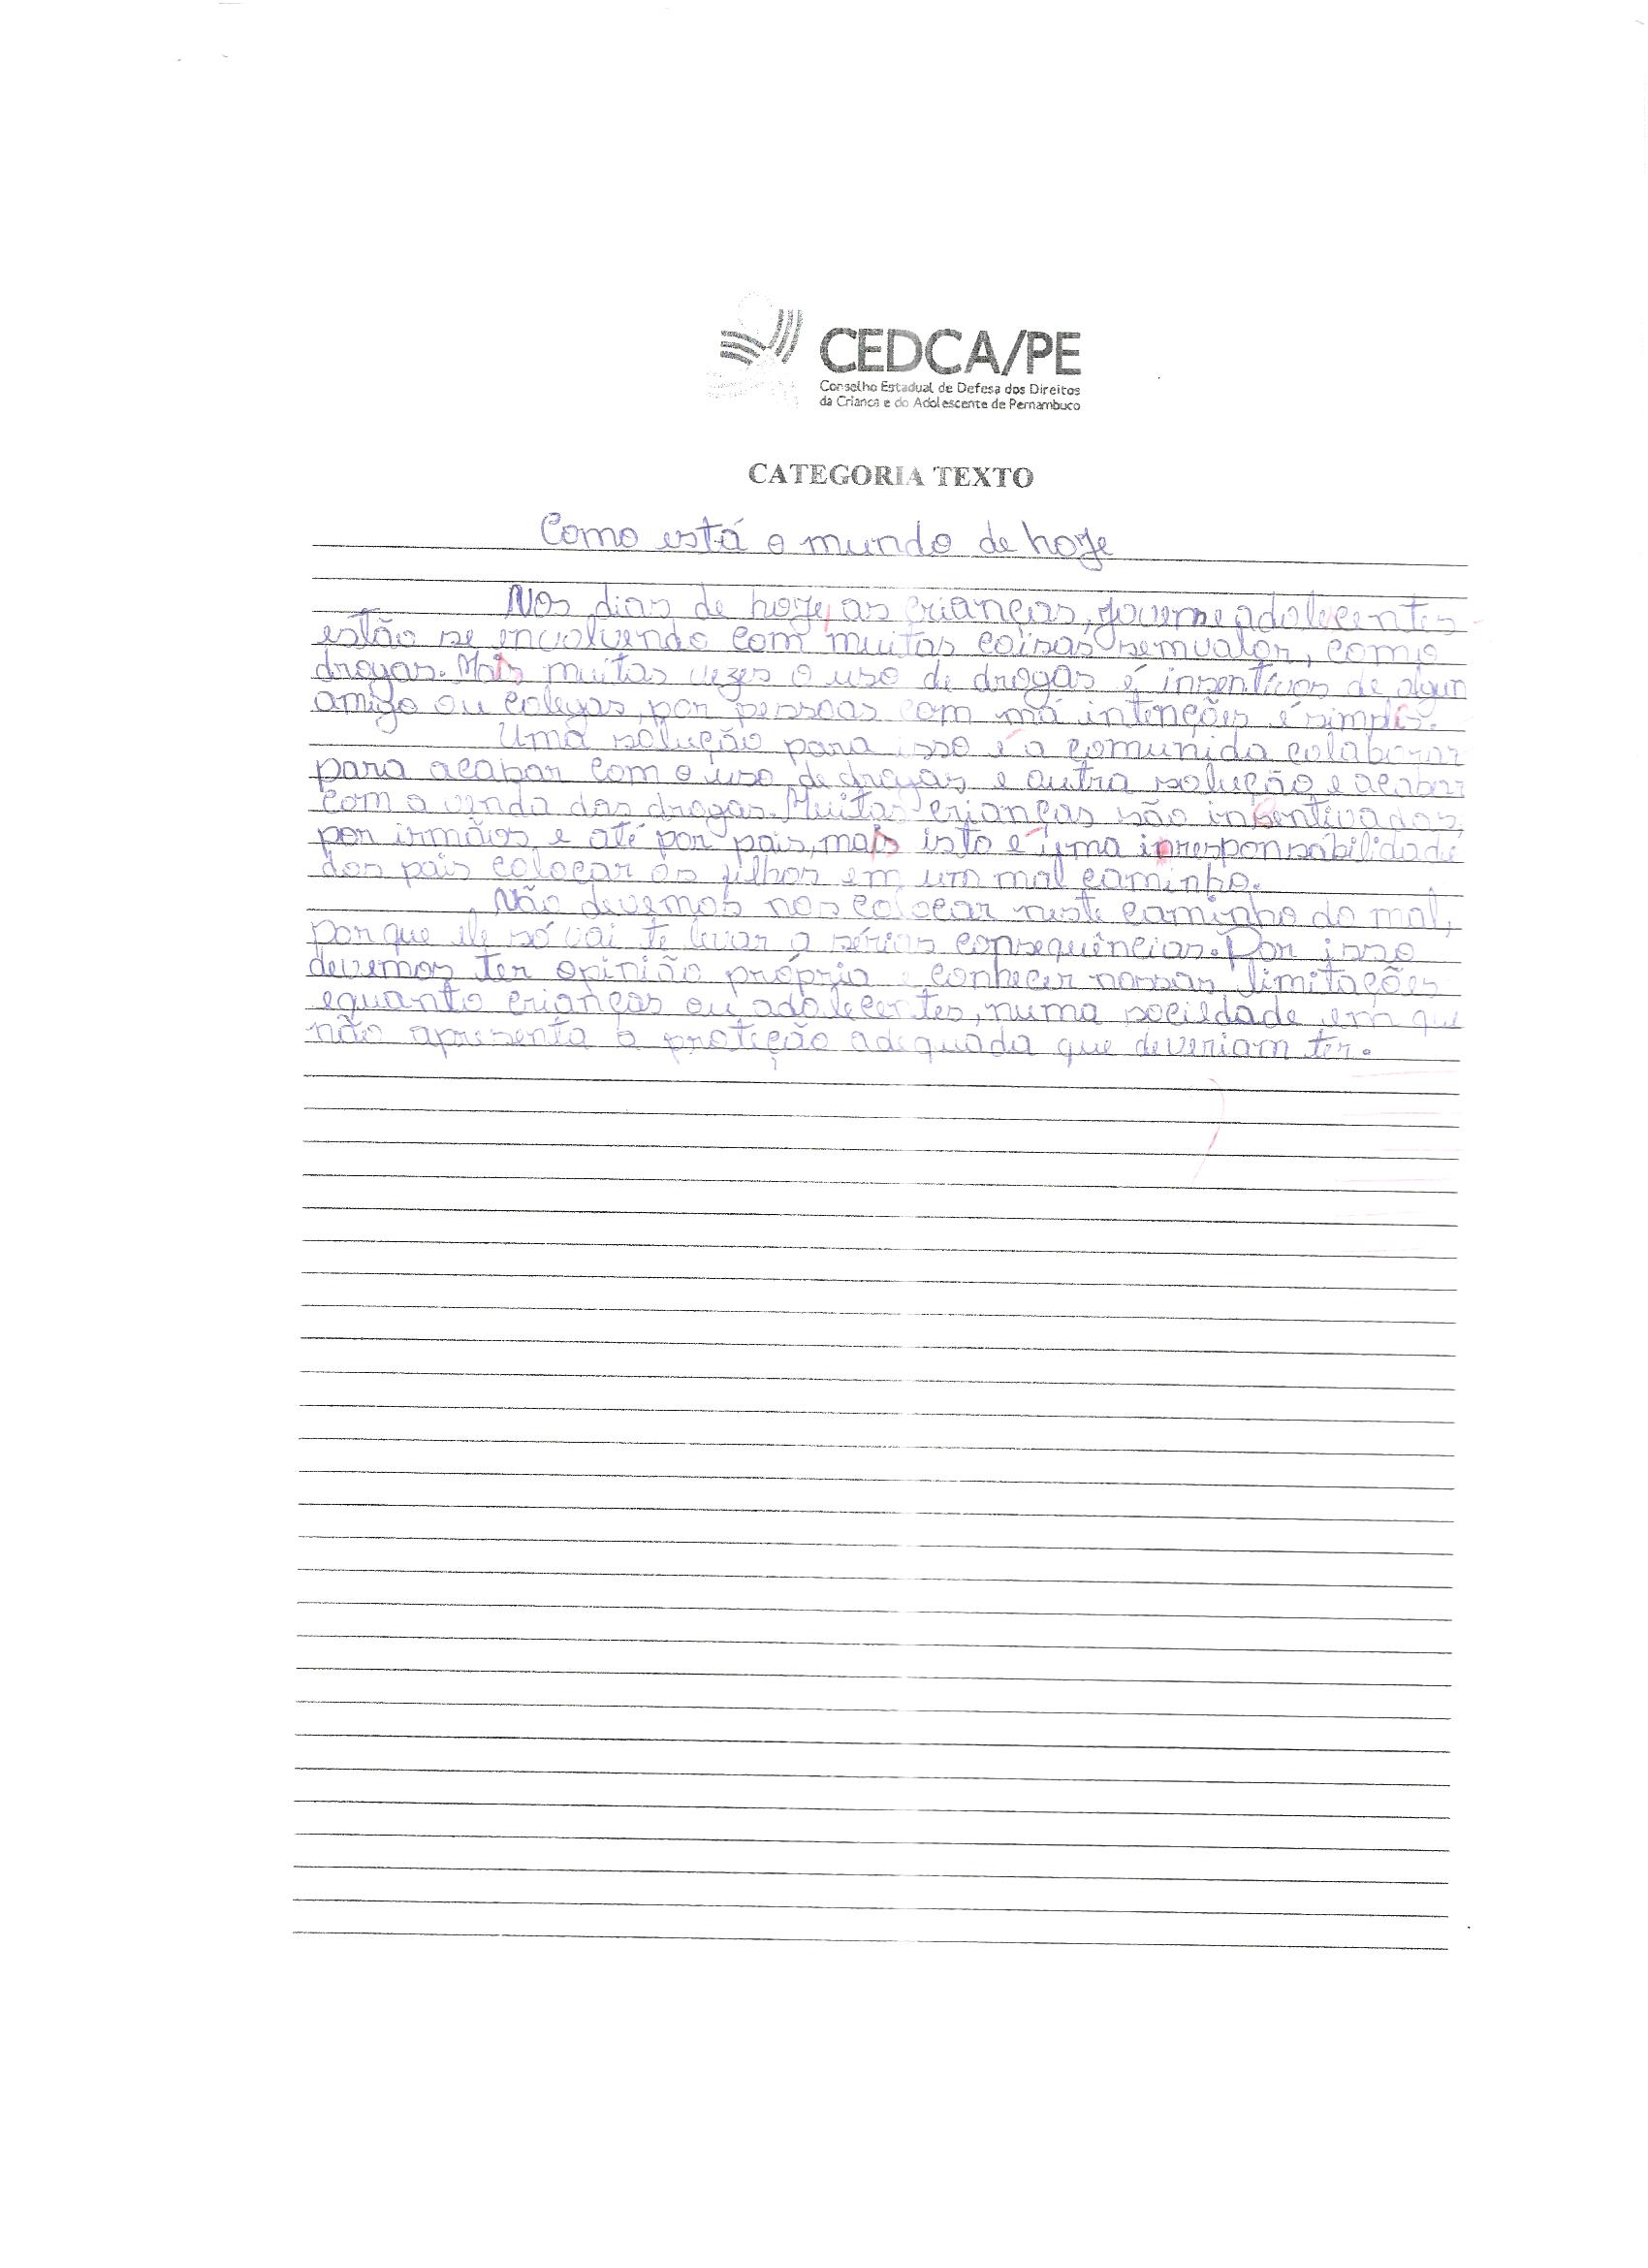 CEDCA/PE
Conselho Estadual de Defesa dos Direitos
da Criança e do Adolescente de Pernambuco
CATEGORIA TEXTO
Como está o mundo de hoje
Nos dias de hoje, as crianças, jovem e adolecentes
estão se envolvendo com muitas coisas sem valor, como
drogas. Mais muitas vezes o uso de drogas é insentivos de algun
amigo ou colegas, por pessoas com má intenções é simples.
Uma solução para isso é a comunida colaborar
para acabar com o uso de drogas e outra solução e acabar
com a venda das drogas. Muitas crianças são insentivadas,
por irmãos, e até por pais, mais isto é uma irresponsabilidade
dos pais colocar os filhos em um mal caminho.
Não devemos nos colocar neste caminho do mal,
porque ele só vai te levar a sérias consequências. Por isso
devemos ter opinião própria e conhecer nossas limitações
equanto crianças ou adolecentes, numa sociedade em que
não apresenta a proteção adequada que deveriam ter.